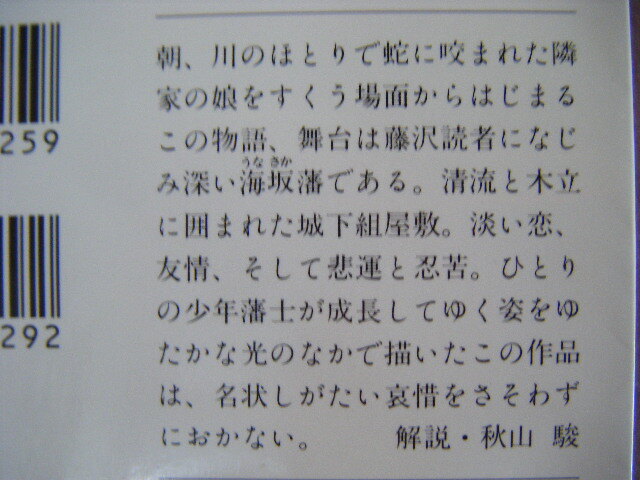 朝、川のほとりで蛇に咬まれた隣
家の娘をすくう場面からはじまる
この物語、舞台は藤沢読者になじ
うなさか
み深い海坂藩である。清流と木立
に囲まれた城下組屋敷。淡い恋、
友情、そして悲運と忍苦。ひとり
の少年藩士が成長してゆく姿をゆ
たかな光のなかで描いたこの作品
は、名状しがたい哀惜をさそわず
におかない。　　解説・秋山 駿
259
292